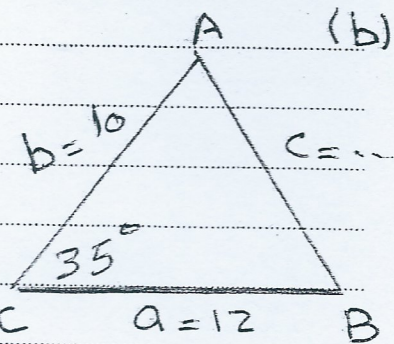 A (b)
b = 10
c = ...
35°
C a = 12 B